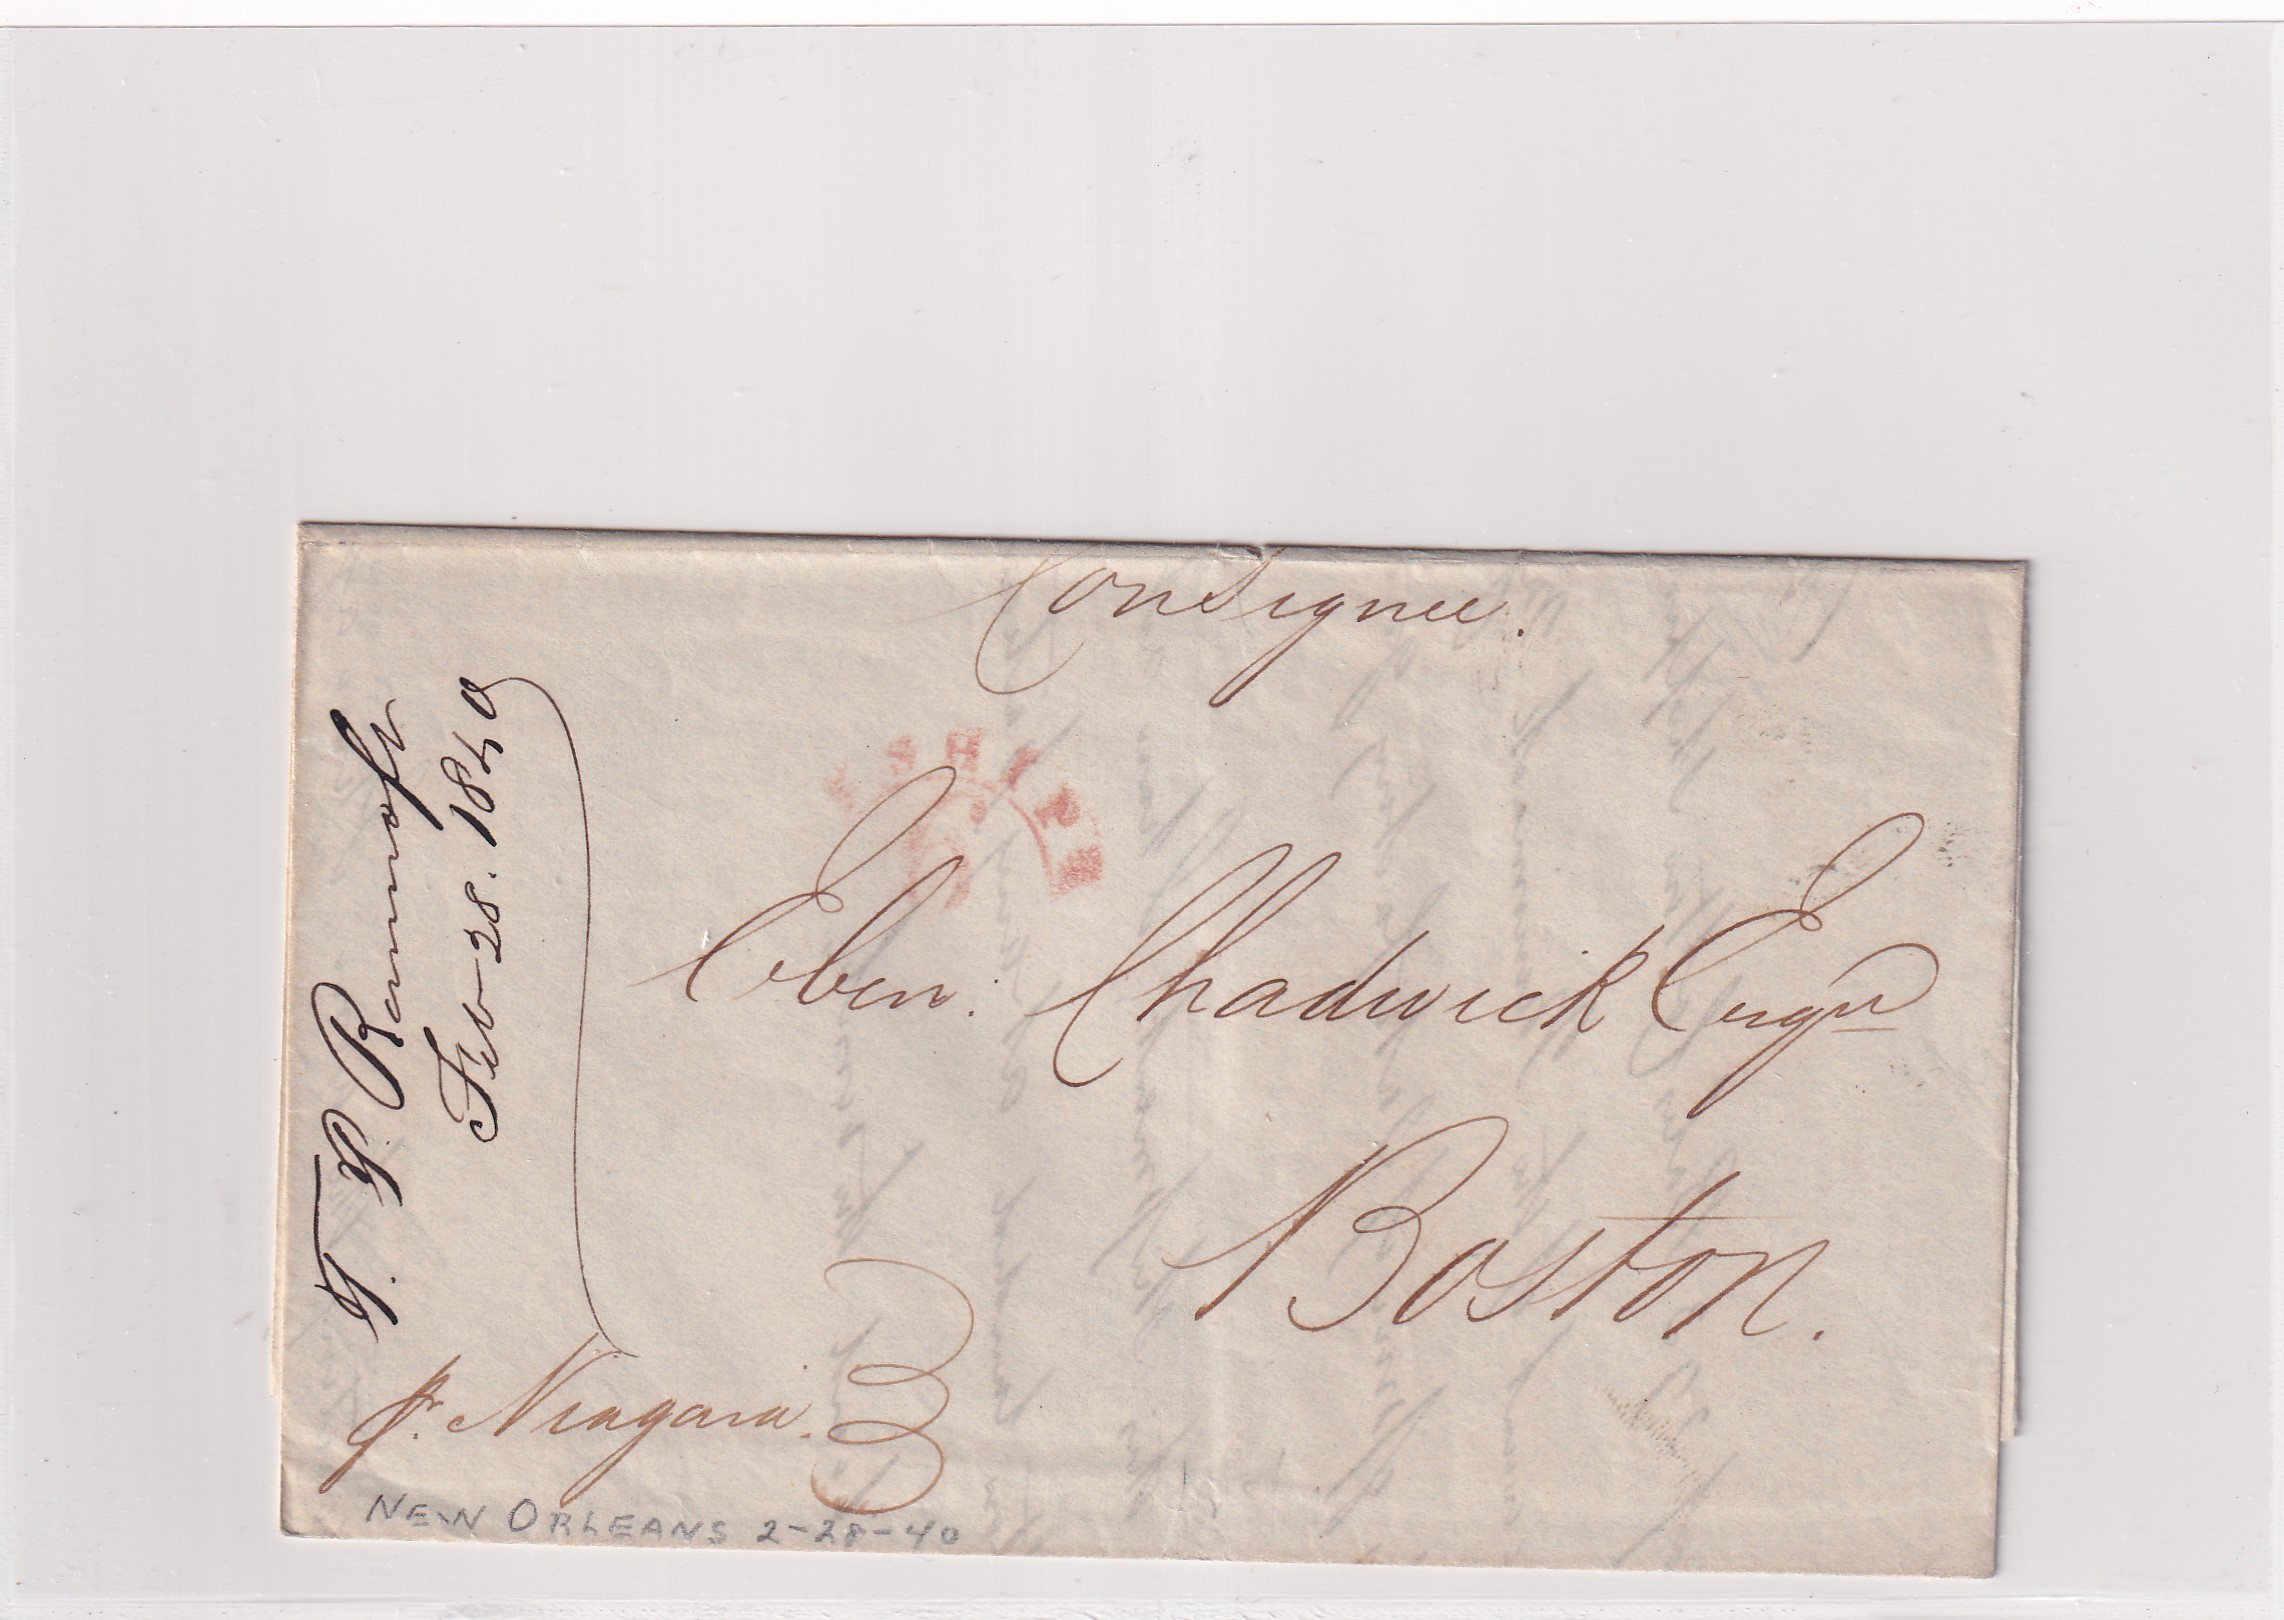 Consignee.
SHIP
Eben: Chadwick Esqr
Boston.
T. P. Bancroft
Feb 28. 1840
pr. Niagara.
NEW ORLEANS 2-28-40